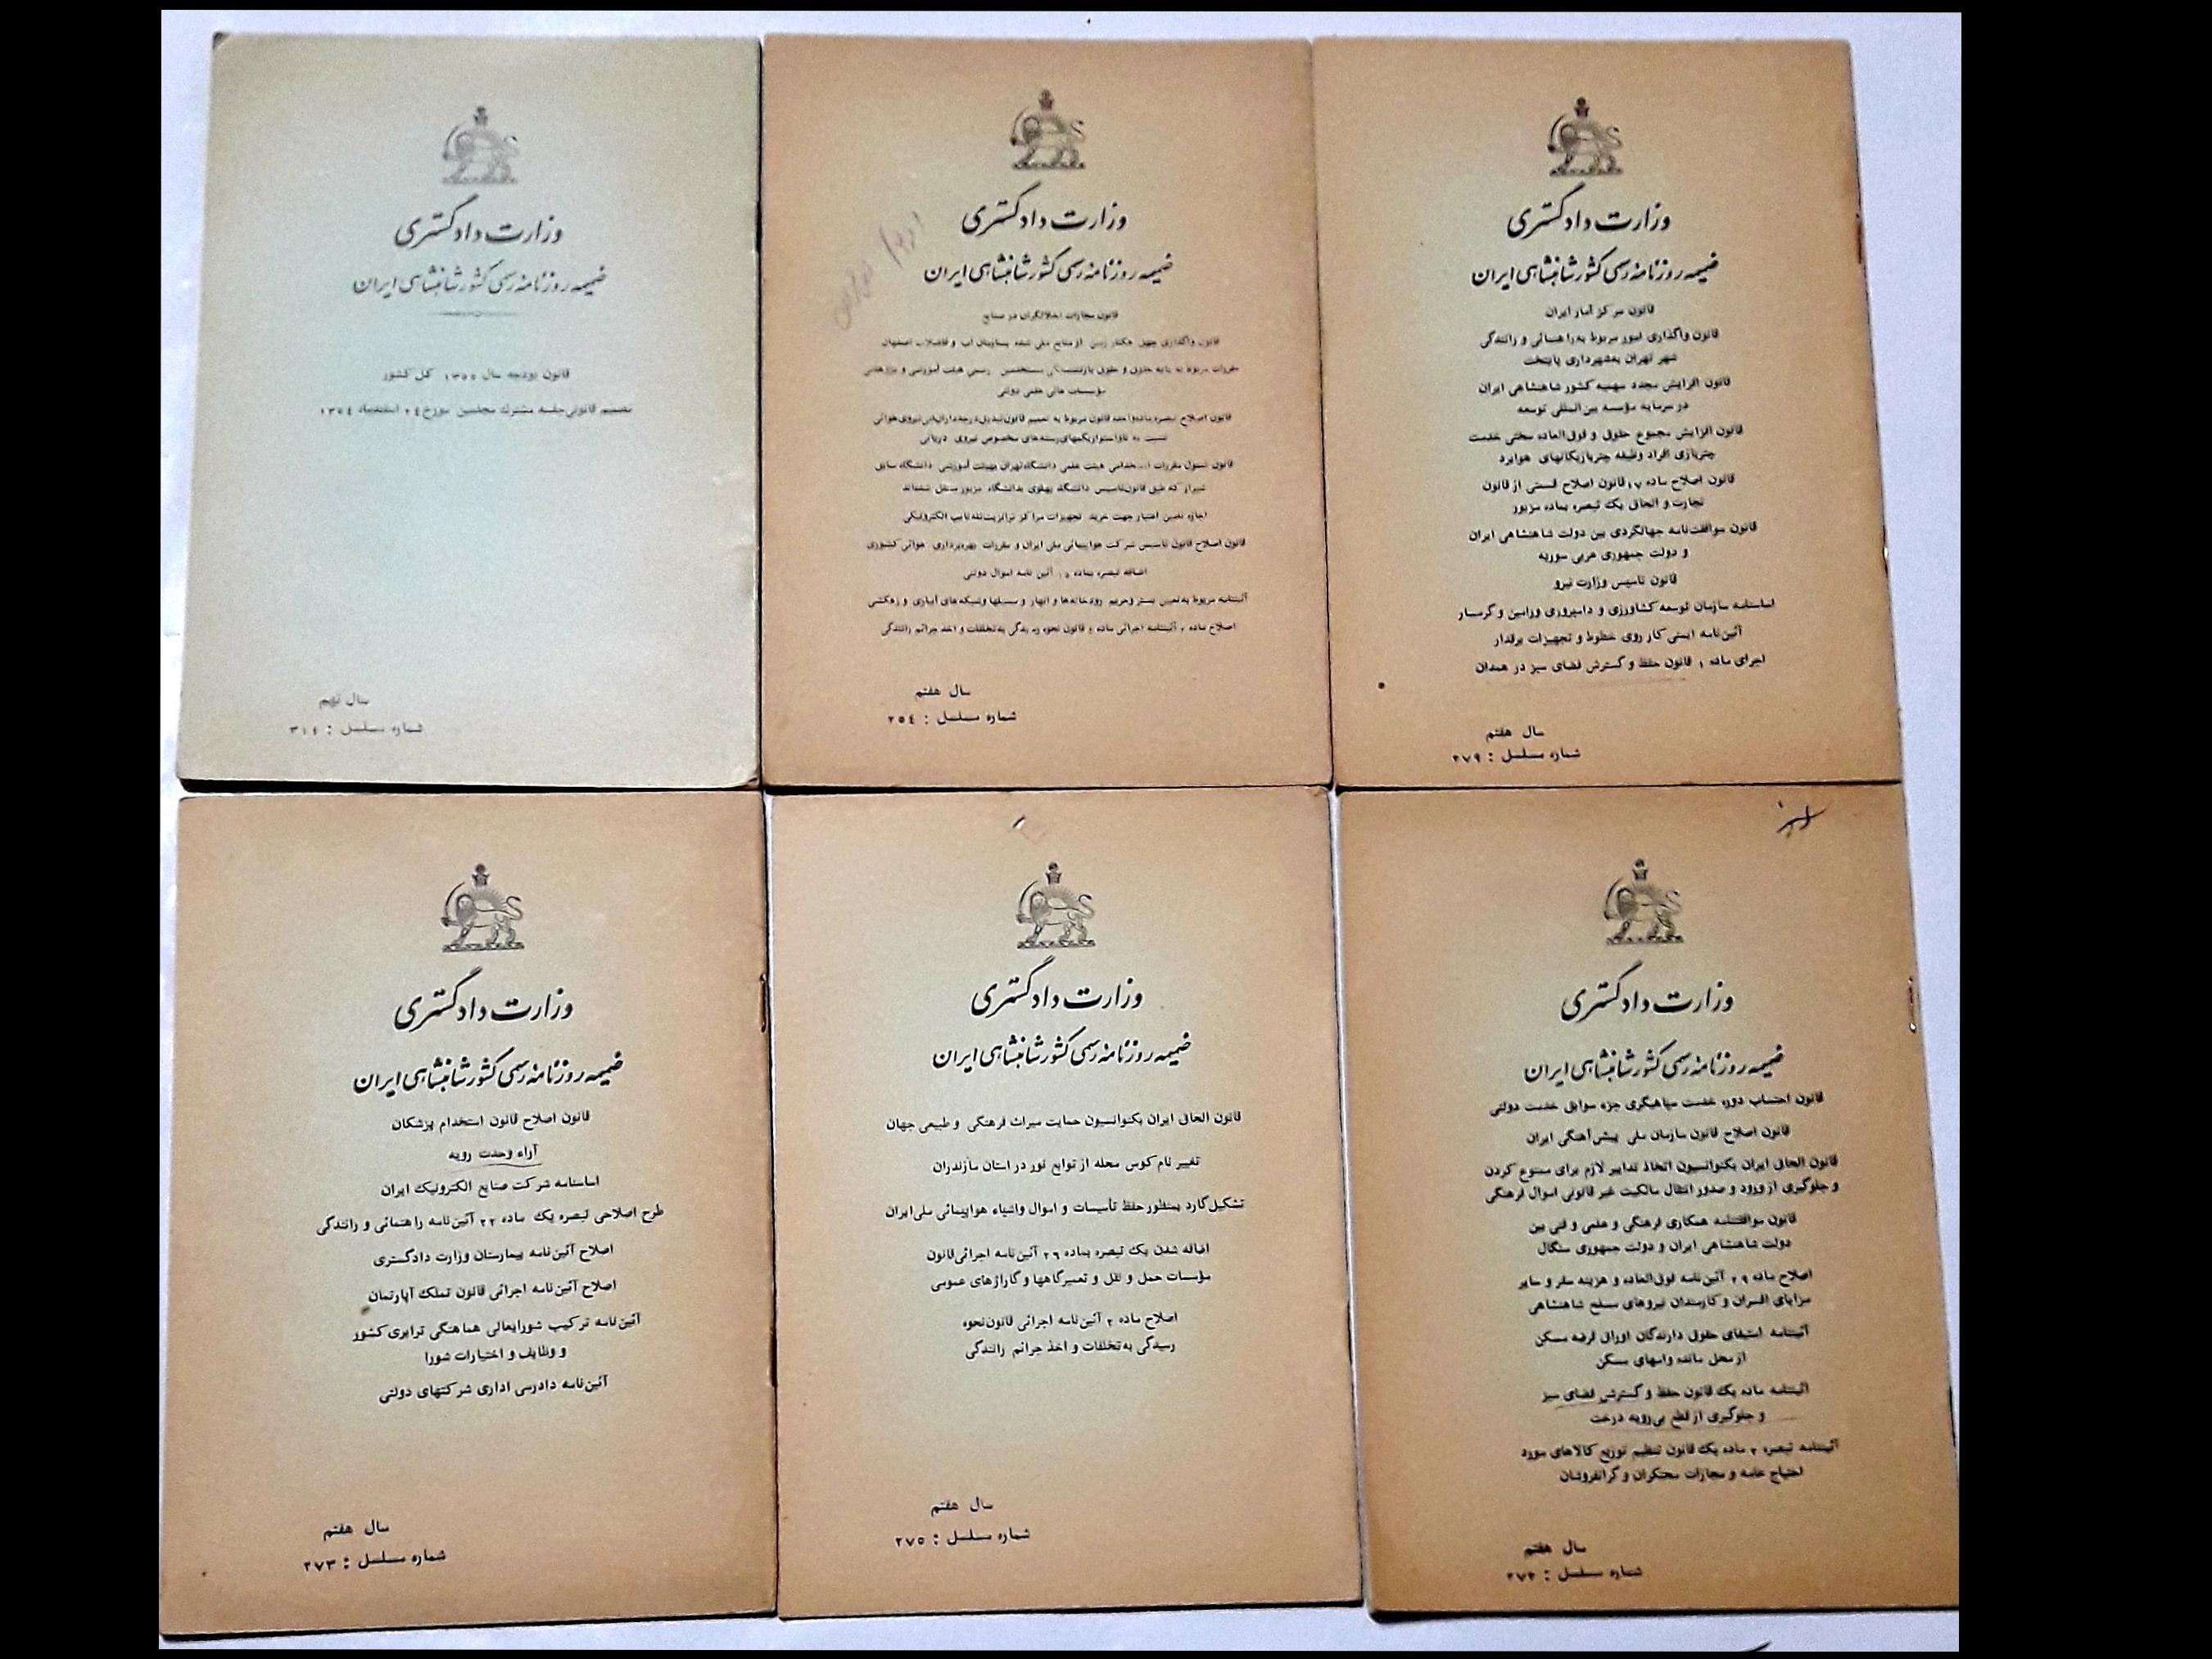 وزارت دادگستری
ضمیمه روزنامه رسمی کشور شاهنشاهی ایران
قانون مرکز آمار ایران
قانون واگذاری امور مربوط به راهنمائی و رانندگی
شهر تهران به‌شهرداری پایتخت
قانون افزایش مجدد سهمیه کشور شاهنشاهی ایران
در سرمایه مؤسسه بین‌المللی توسعه
قانون افزایش مجموع حقوق و فوق‌العاده سختی خدمت
چتربازی افراد وظیفه چترباز یگانهای هوابرد
قانون اصلاح ماده ۱۷ قانون اصلاح قسمتی از قانون
تجارت و الحاق یک تبصره بماده مزبور
قانون موافقت‌نامه جهانگردی بین دولت شاهنشاهی ایران
و دولت جمهوری عربی سوریه
قانون تأسیس وزارت نیرو
اساسنامه سازمان توسعه کشاورزی و دامپروری ورامین و گرمسار
آئین‌نامه ایمنی کار روی خطوط و تجهیزات برقدار
اجرای ماده ۱ قانون حفظ و گسترش فضای سبز در همدان
سال هفتم
شماره مسلسل : ۲۷۹
وزارت دادگستری
ضمیمه روزنامه رسمی کشور شاهنشاهی ایران
قانون مجازات اخلالگران در صنایع
قانون واگذاری چهل هکتار زمین از منابع ملی شده بسازمان آب و فاضلاب اصفهان
مقررات مربوط به پایه حقوق و حقوق بازنشستگی مستخدمین رسمی هیئت آموزشی و پژوهشی
مؤسسات عالی علمی دولتی
قانون اصلاح تبصره ماده‌واحده قانون مربوط به تعمیم قانون تبدیل درجه‌داران فنی نیروی هوائی
نسبت به ناو استواریکمهای رسته‌های مخصوص نیروی دریائی
قانون شمول مقررات استخدامی هیئت علمی دانشگاه تهران بهیئت آموزشی دانشگاه سابق
شیراز که طبق قانون تأسیس دانشگاه پهلوی بدانشگاه مزبور منتقل شده‌اند
اجازه تعیین اعتبار جهت خرید تجهیزات مراکز ترانزیت تله تایپ الکترونیکی
قانون اصلاح قانون تأسیس شرکت هواپیمائی ملی ایران و مقررات بهره‌برداری هوائی کشوری
اضافه تبصره بماده آئین نامه اموال دولتی
آئیننامه مربوط به‌تعیین بستر و حریم رودخانه‌ها و انهار و مسیلها و شبکه‌های آبیاری و زهکشی
اصلاح ماده ۲ آئیننامه اجرائی ماده قانون نحوه رسیدگی به تخلفات و اخذ جرائم رانندگی
سال هفتم
شماره مسلسل : ۲۵۴
وزارت دادگستری
ضمیمه روزنامه رسمی کشور شاهنشاهی ایران
قانون بودجه سال ۱۳۵۵ کل کشور
تصمیم قانونی جلسه مشترك مجلسین مورخ ۲۴ اسفندماه ۱۳۵٤
سال نهم
شماره مسلسل : ۳۱٤
وزارت دادگستری
ضمیمه روزنامه رسمی کشور شاهنشاهی ایران
قانون احتساب دوره خدمت سپاهیگری جزء سوابق خدمت دولتی
قانون اصلاح قانون سازمان ملی پیش‌آهنگی ایران
قانون الحاق ایران بکنوانسیون اتخاذ تدابیر لازم برای ممنوع کردن
و جلوگیری از ورود و صدور انتقال مالکیت غیر قانونی اموال فرهنگی
قانون موافقتنامه همکاری فرهنگی و علمی و فنی بین
دولت شاهنشاهی ایران و دولت جمهوری سنگال
اصلاح ماده ۲۹ آئین‌نامه فوق‌العاده و هزینه سفر و سایر
مزایای افسران و کارمندان نیروهای مسلح شاهنشاهی
آئیننامه استیفای حقوق دارندگان اوراق قرضه مسکن
از محل مانده وامهای مسکن
آئیننامه ماده یک قانون حفظ و گسترش فضای سبز
و جلوگیری از قطع بی‌رویه درخت
آئیننامه تبصره ۲ ماده یک قانون تنظیم توزیع کالاهای مورد
احتیاج عامه و مجازات محتکران و گرانفروشان
سال هفتم
شماره مسلسل :
وزارت دادگستری
ضمیمه روزنامه رسمی کشور شاهنشاهی ایران
قانون الحاق ایران بکنوانسیون حمایت میراث فرهنگی و طبیعی جهان
تغییر نام کوس محله از توابع نور در استان مازندران
تشکیل گارد بمنظور حفظ تأسیسات و اموال و اشیاء هواپیمائی ملی ایران
اضافه شدن یک تبصره بماده ۲۶ آئین‌نامه اجرائی قانون
مؤسسات حمل و نقل و تعمیرگاهها و گاراژهای عمومی
اصلاح ماده ۲ آئین‌نامه اجرائی قانون نحوه
رسیدگی به تخلفات و اخذ جرائم رانندگی
سال هفتم
شماره مسلسل : ۲۷۵
وزارت دادگستری
ضمیمه روزنامه رسمی کشور شاهنشاهی ایران
قانون اصلاح قانون استخدام پزشکان
آراء وحدت رویه
اساسنامه شرکت صنایع الکترونیک ایران
طرح اصلاحی تبصره یک ماده ۲۲ آئین‌نامه راهنمائی و رانندگی
اصلاح آئین‌نامه بیمارستان وزارت دادگستری
اصلاح آئین‌نامه اجرائی قانون تملک آپارتمان
آئین‌نامه ترکیب شورایعالی هماهنگی ترابری کشور
و وظایف و اختیارات شورا
آئین‌نامه دادرسی اداری شرکتهای دولتی
سال هفتم
شماره مسلسل : ۲۷۳